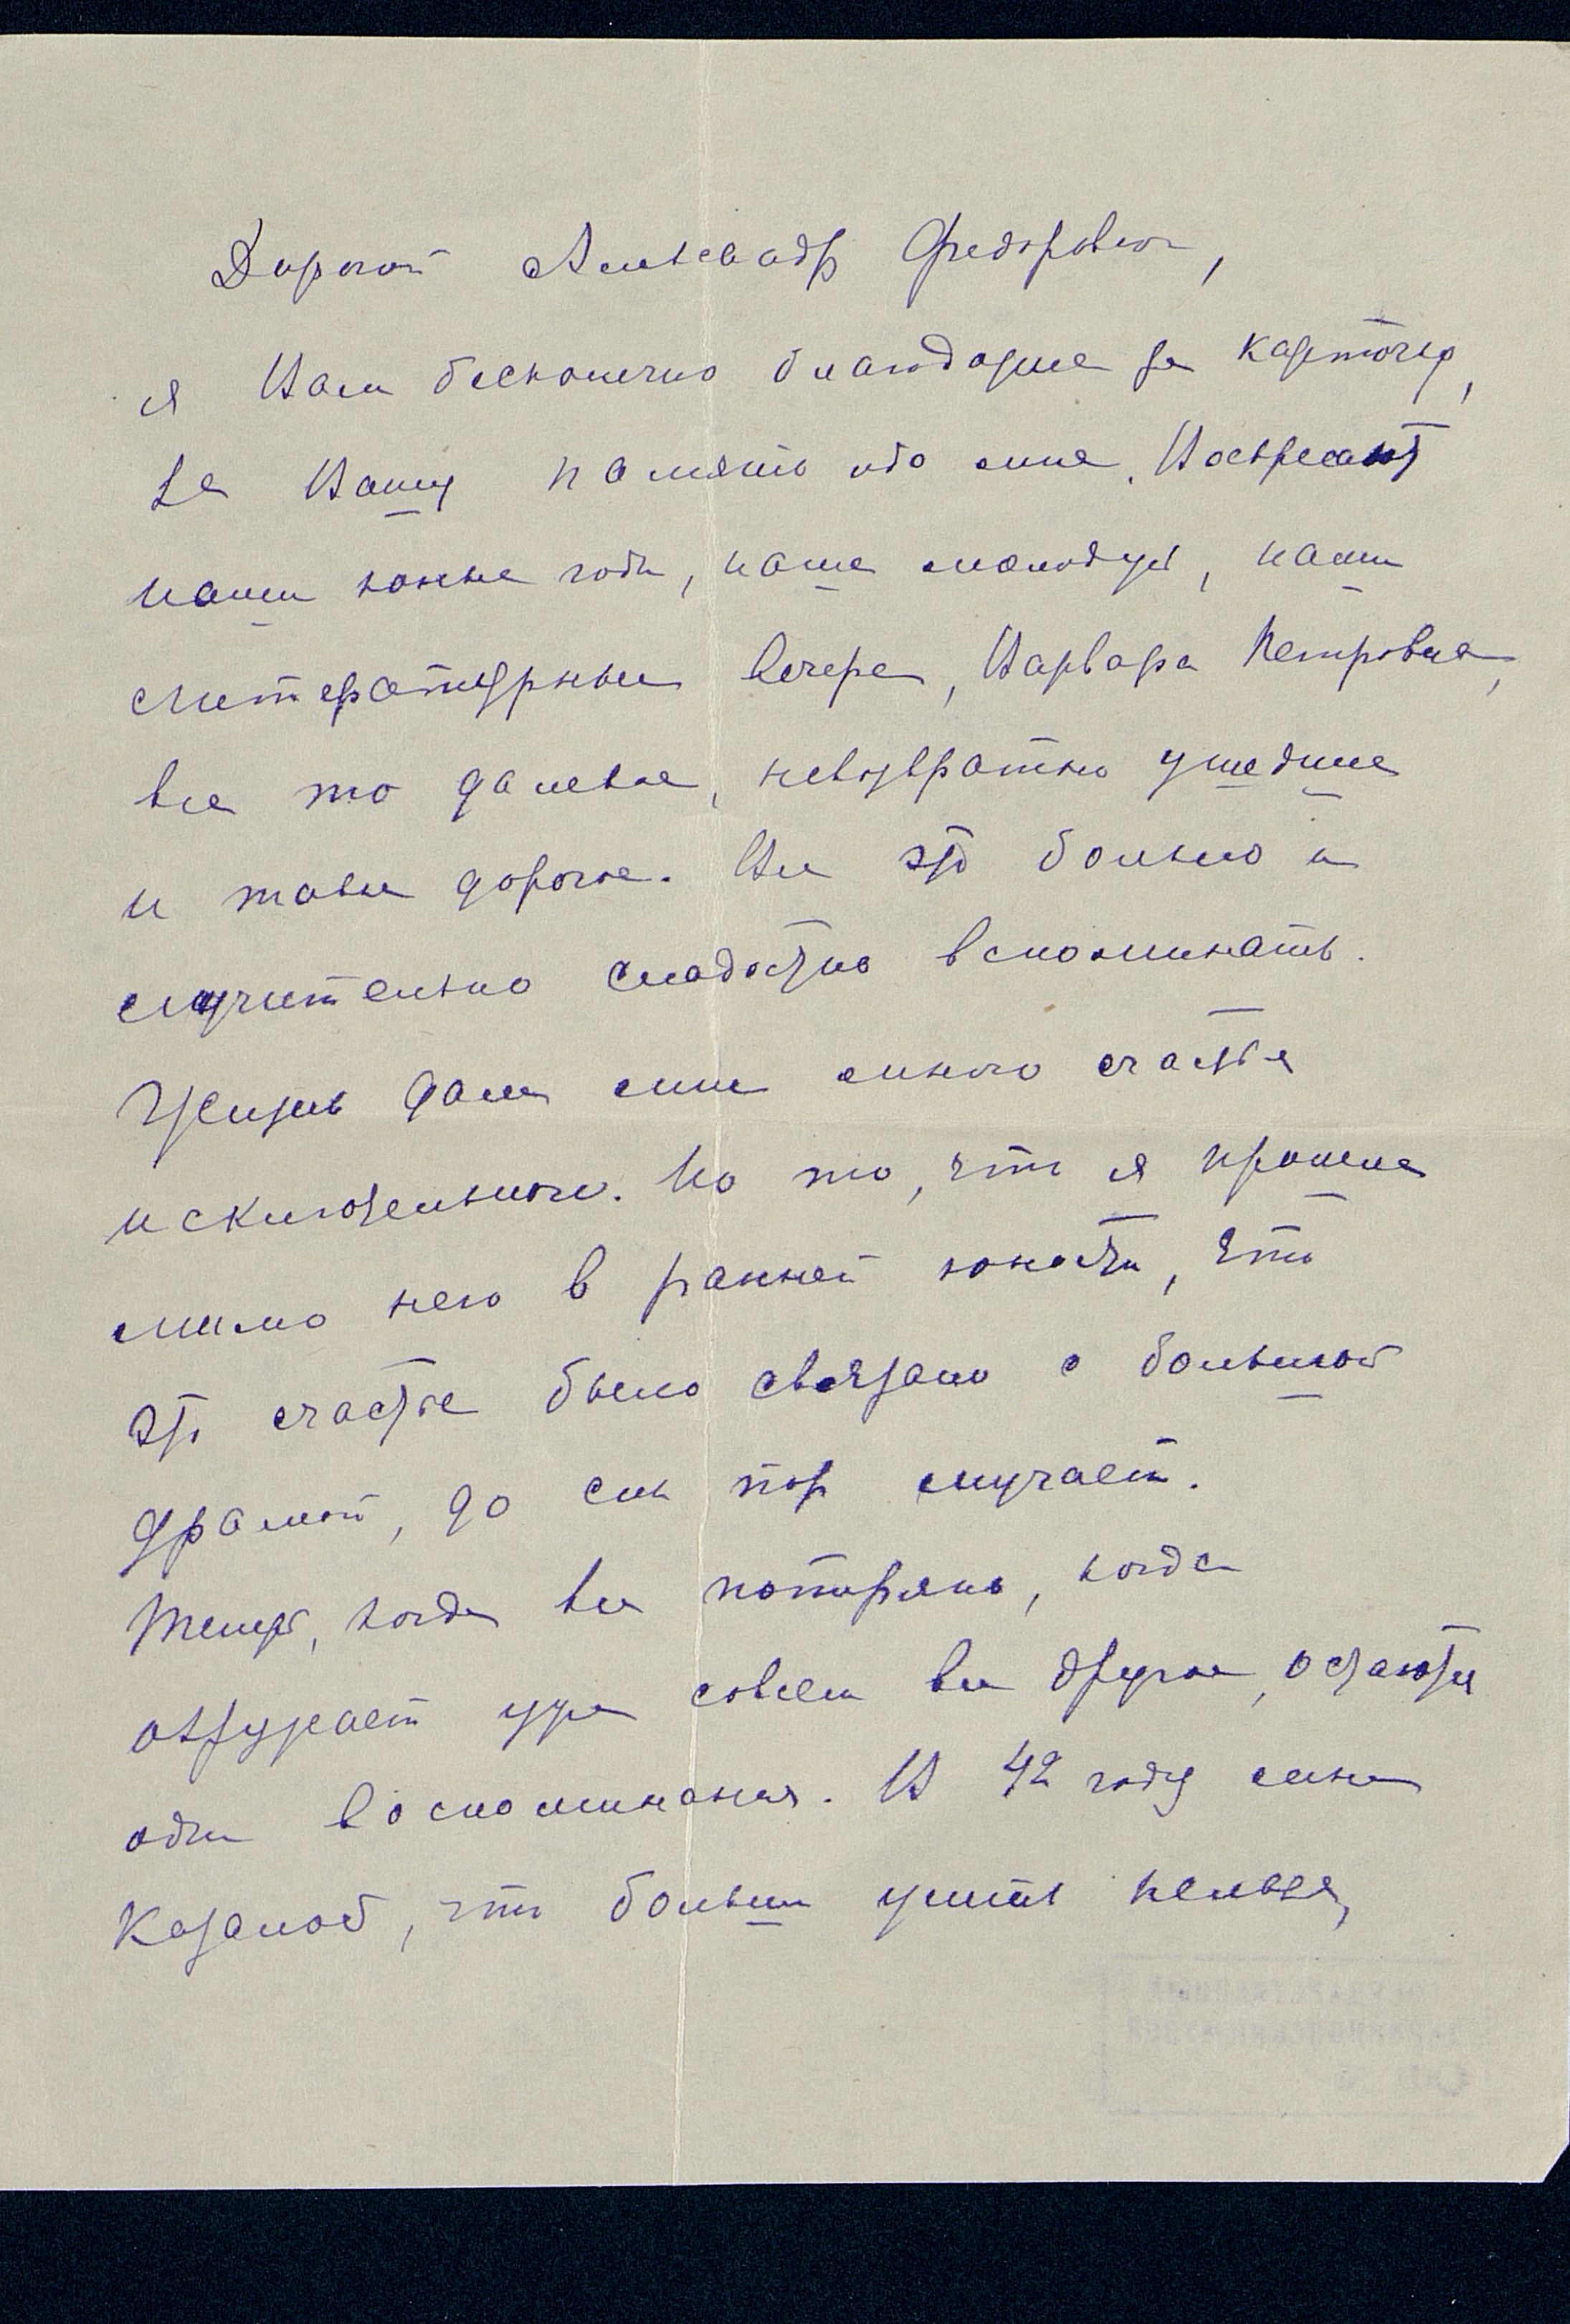 Дорогой Александр Федорович,
я Вам бесконечно благодарна за карточку,
за Вашу память обо мне. Воскресают
наши юные годы, наша молодежь, наши
литературные вечера, Варвара Петровна,
все то далекое, невозвратно ушедшее
и такое дорогое. Все это больно и
мучительно сладостно вспоминать.
Жизнь дала мне много счастья
исключительного. Но то, что я прошла
мимо него в ранней юности, что
это счастье было связано с большой
драмой, до сих пор мучает.
Теперь, когда все потеряно, когда
окружает уже совсем все другое, остаются
одни воспоминания. В 42 году мне
казалось, что больше жить нельзя,